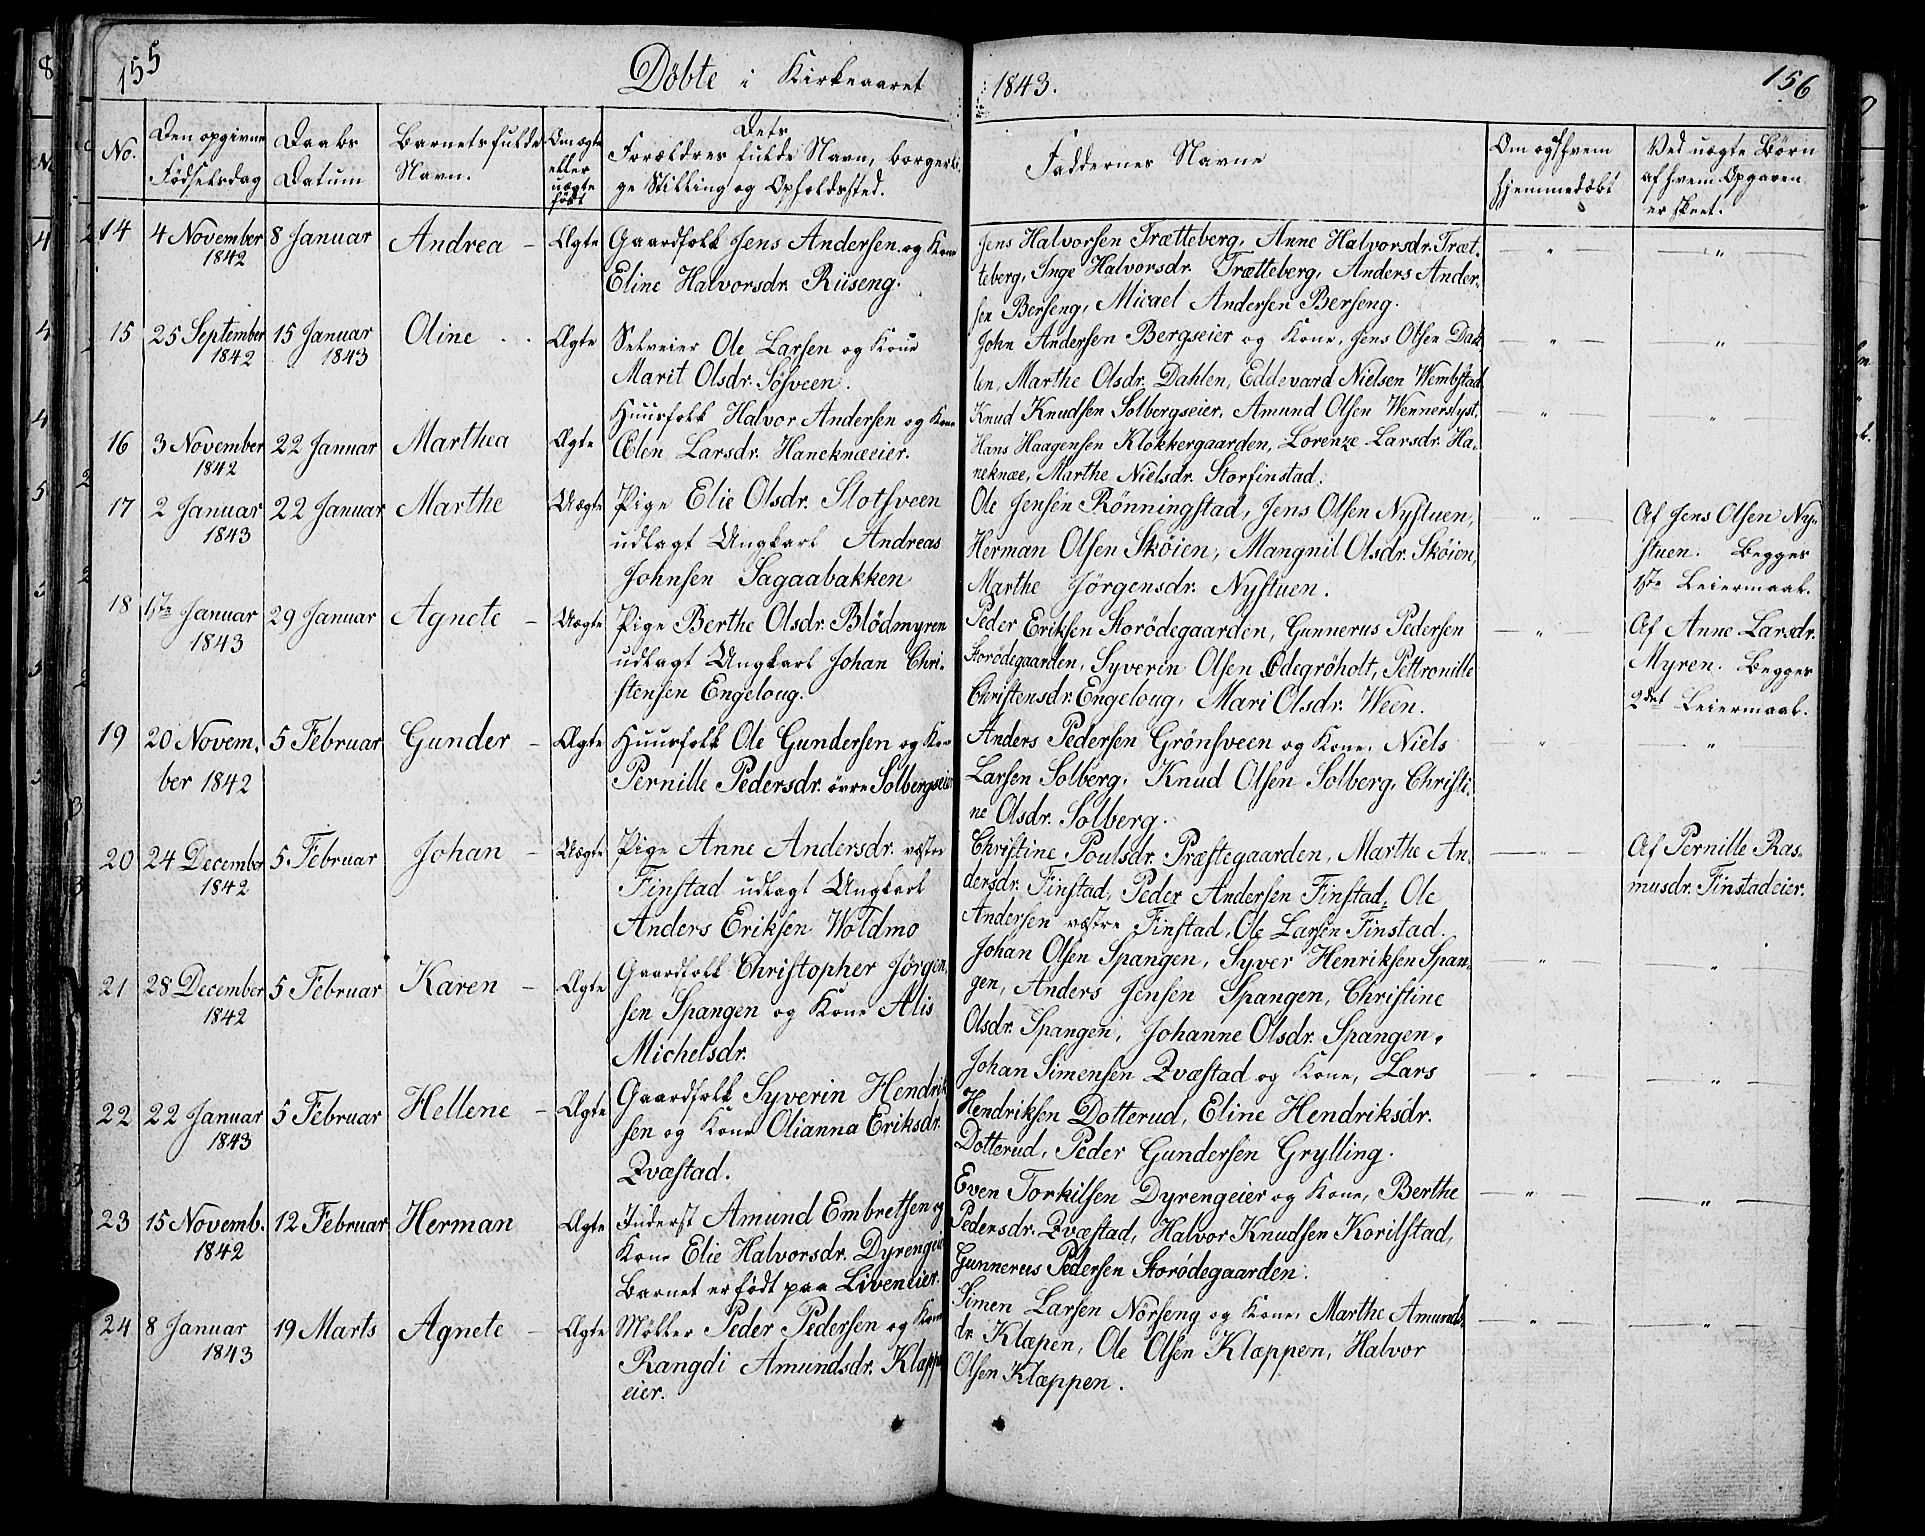 155
Döbte i Kirkeaaret
1843.
156
No.
Den opgivne
Födselsdag
Daabs
Datum
Barnets fulde
Navn.
Om ægte
eller
uægte
födt
Dets
Forældres fulde Navn, borgerli-
ge Stilling og Opholdssted.
Faddernes Navne
Om og af hvem
hjemmedöbt
Ved uægte Börn
af hvem Opgaven
er skeet.
14
4 November
1842
8 Januar
Andrea -
Ægte
Gaardfolk Jens Andersen og Kone
Eline Halvorsdr. Riiseng.
Jens Halvorsen Trætteberg, Anne Halvorsdr. Træt-
teberg, Inge Halvorsdr. Trætteberg, Anders Ander-
sen Berseng, Micael Andersen Berseng.
15
25 September
1842
15 Januar
1843
Oline
Ægte
Selveier Ole Larsen og Kone
Marit Olsdr. Sösveen.
John Andersen Bergseier og Kone, Jens Olsen Dah-
len, Marthe Olsdr. Dahlen, Eddevard Nielsen Wembstad
16
3 November
1842
22 Januar
Marthea
Ægte
Huusfolk Halvor Andersen og Kone
Olen Larsdr. Haneknæeier.
Knud Knudsen Solbergseier, Amund Olsen Wennerslyst,
Hans Haagensen Klokkergaarden, Lorenze Larsdr. Ha-
neknæe, Marthe Nielsdr. Storfinstad.
17
2 Januar
1843
22 Januar
Marthe
Uægte
Pige Elie Olsdr. Slotsveen
udlagt Ungkarl Andreas
Johnsen Sagaabakken
Ole Jensen Rönningstad, Jens Olsen Nystuen,
Herman Olsen Sköien, Mangnil Olsdr. Sköien,
Marthe Jörgensdr. Nystuen.
Af Jens Olsen Ny-
stuen. Begges
1ste Leiermaal.
18
1ste Januar
1843
29 Januar
Agnete -
Uægte
Pige Berthe Olsdr. Blödmyren
udlagt Ungkarl Johan Chri-
stensen Engeloug.
Peder Eriksen Storödegaarden, Gunnerus Pedersen
Storödegaarden, Syverin Olsen Ödegröholt, Pettronille
Christensdr. Engeloug, Mari Olsdr. Ween.
Af Anne Larsdr.
Myren. Begges
2det Leiermaal.
19
20 Novem-
ber 1842
5 Februar
Gunder -
Ægte
Huusfolk Ole Gundersen og Kone
Pernille Pedersdr. övre Solbergseier
Anders Pedersen Grönsveen og Kone, Niels
Larsen Solberg, Knud Olsen Solberg, Christi-
ne Olsdr. Solberg.
20
24 December
1842
5 Februar
Johan -
Uægte
Pige Anne Andersdr. vestre
Finstad udlagt Ungkarl
Anders Eriksen Woldmo
Christine Poulsdr. Præstegaarden, Marthe An-
dersdr. Finstad, Peder Andersen Finstad, Ole
Andersen vestre Finstad, Ole Larsen Finstad.
Af Pernille Ras-
musdr. Finstadeier.
21
28 December
1842
5 Februar
Karen -
Ægte
Gaardfolk Christopher Jörgen-
sen Spangen og Kone Alis
Michelsdr.
Johan Olsen Spangen, Syver Henriksen Span-
gen, Anders Jensen Spangen, Christine
Olsdr. Spangen, Johanne Olsdr. Spangen.
22
22 Januar
1843
5 Februar
Hellene -
Ægte
Gaardfolk Syverin Hendrik-
sen og Kone Olianna Eriksdr.
Qvæstad.
Johan Simensen Qvæstad og Kone, Lars
Hendriksen Dotterud, Eline Hendriksdr.
Dotterud, Peder Gundersen Grylling.
23
15 Novemb.
1842
12 Februar
Herman
Ægte
Inderst Amund Embretsen og
Kone Elie Halvorsdr. Dyrengeier
Barnet er födt paa Liveneier.
Even Torkilsen Dyrengeier og Kone, Berthe
Pedersdr. Qvæstad, Halvor Knudsen Korilstad,
Gunnerus Pedersen Storödegaarden.
24
8 Januar
1843
19 Marts
Agnete -
Ægte
Möller Peder Pedersen og Kone
Rangdi Amundsdr. Klæppe-
eier.
Simen Larsen Nörseng og Kone, Marthe Amunds-
dr. Klæpen, Ole Olsen Klæppem, Halvor
Olsen Klæppen.